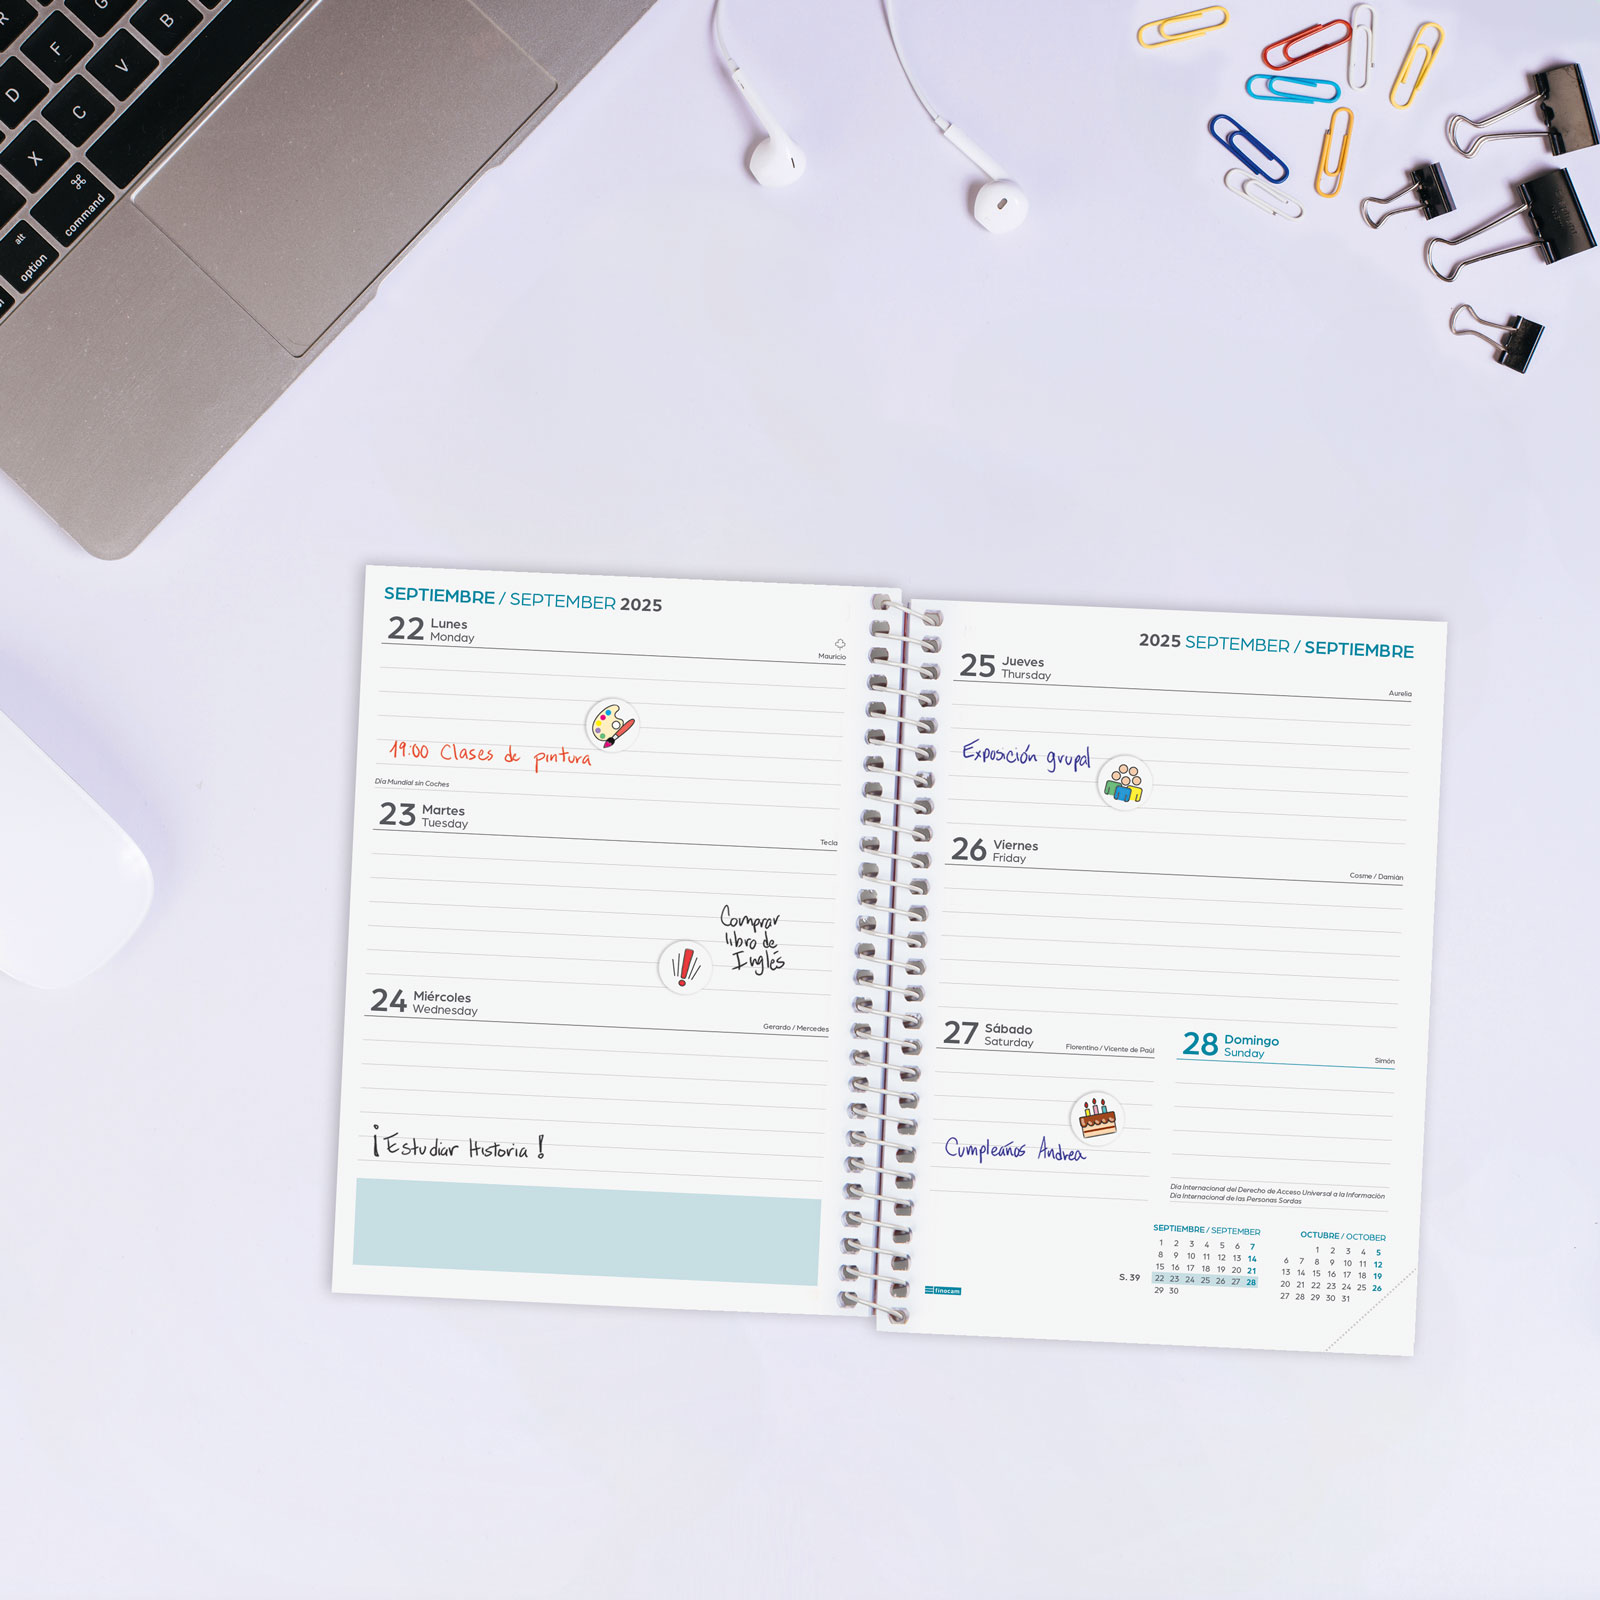 R
F
G
B
D
V
C
X
⌘
command
alt
option
SEPTIEMBRE / SEPTEMBER 2025
22 Lunes
Monday
Mauricio
19:00 Clases de pintura
Día Mundial sin Coches
23 Martes
Tuesday
Tecla
Comprar
libro de
Inglés
24 Miércoles
Wednesday
Gerardo / Mercedes
¡Estudiar Historia!
2025 SEPTEMBER / SEPTIEMBRE
25 Jueves
Thursday
Aurelia
Exposición grupal
26 Viernes
Friday
Cosme / Damián
27 Sábado
Saturday
Florentino / Vicente de Paúl
Cumpleaños Andrea
28 Domingo
Sunday
Simón
Día Internacional del Derecho de Acceso Universal a la Información
Día Internacional de las Personas Sordas
SEPTIEMBRE / SEPTEMBER
1 2 3 4 5 6 7
8 9 10 11 12 13 14
15 16 17 18 19 20 21
S. 39 22 23 24 25 26 27 28
29 30
OCTUBRE / OCTOBER
1 2 3 4 5
6 7 8 9 10 11 12
13 14 15 16 17 18 19
20 21 22 23 24 25 26
27 28 29 30 31
finocam